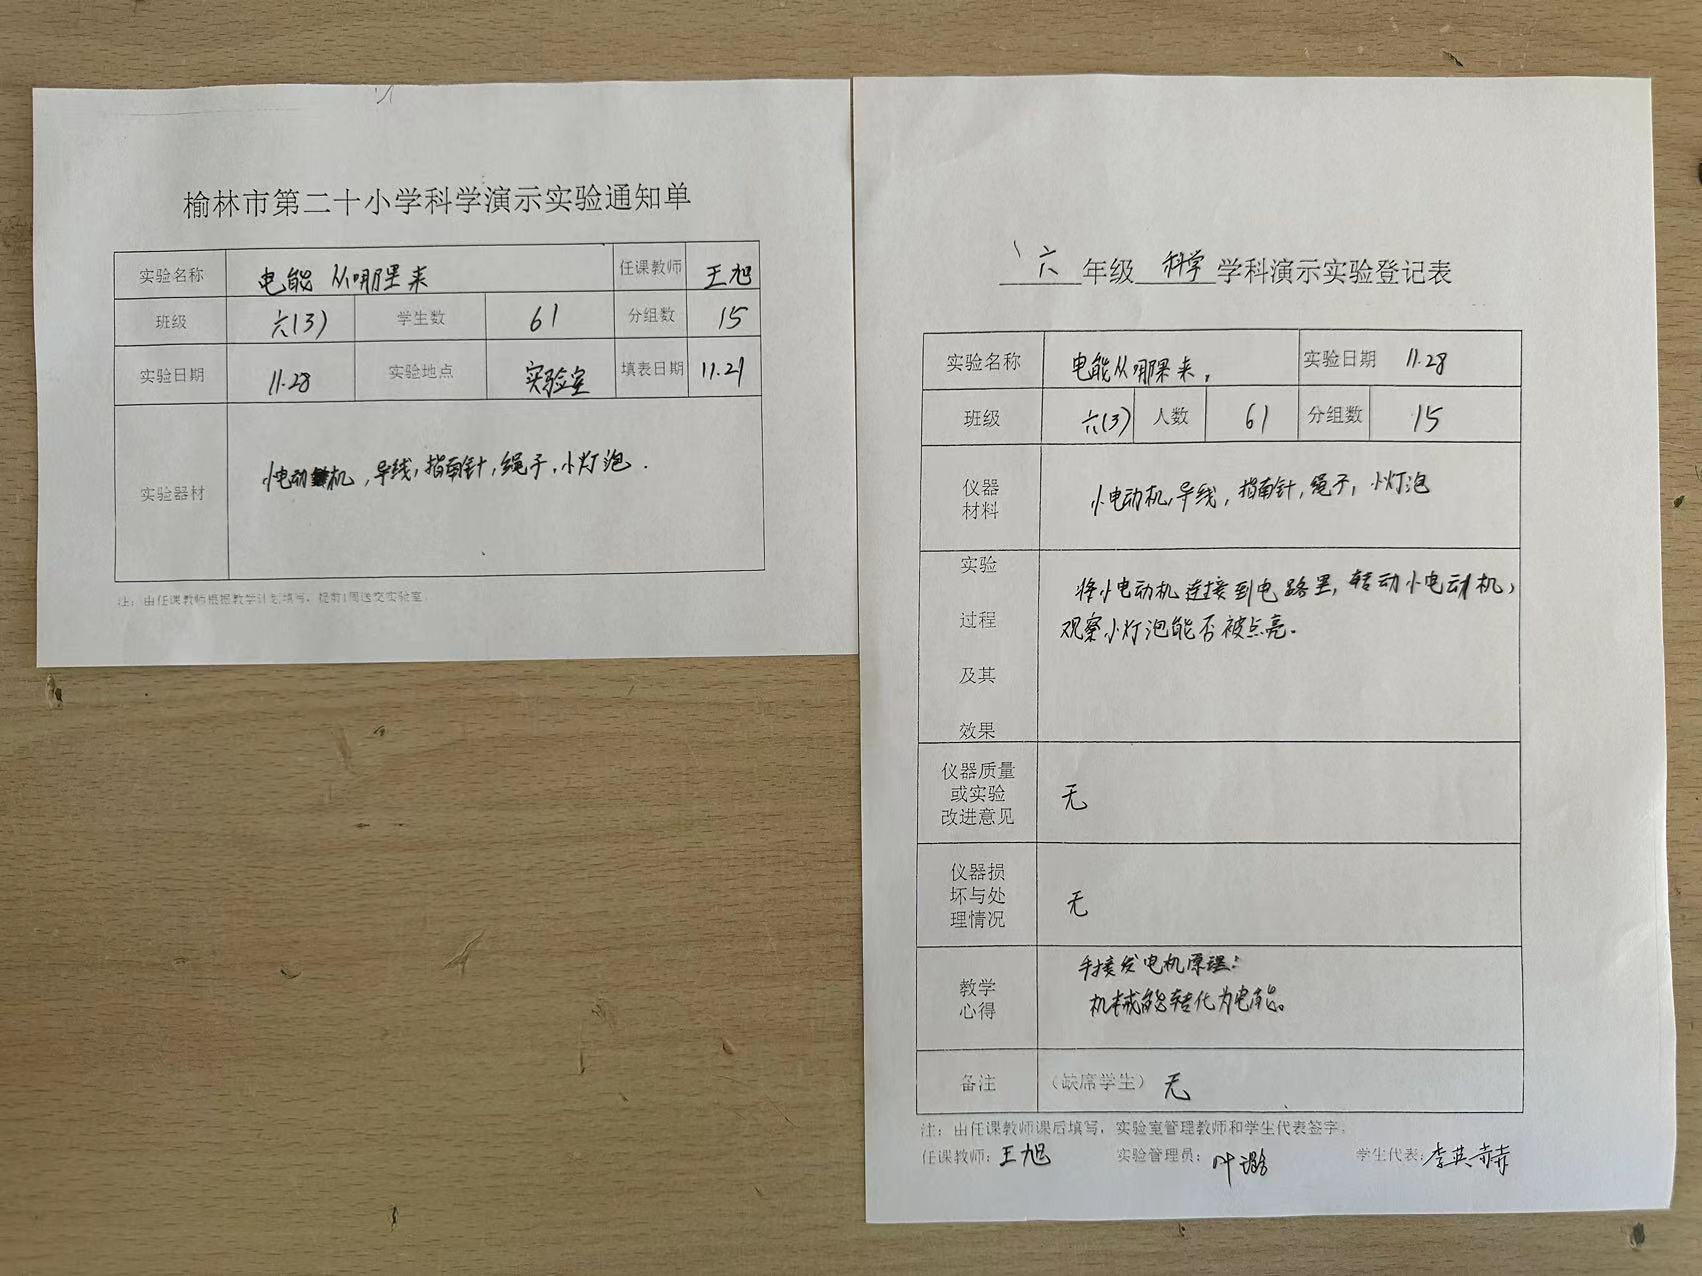 榆林市第二十小学科学演示实验通知单
实验名称 电能从哪里来 任课教师 王旭
班级 六(3) 学生数 61 分组数 15
实验日期 11.28 实验地点 实验室 填表日期 11.21
实验器材 小电动机，导线，指南针，绳子，小灯泡．
注：由任课教师根据教学计划填写，提前1周送交实验室。
六年级科学学科演示实验登记表
实验名称 电能从哪里来， 实验日期 11.28
班级 六(3) 人数 61 分组数 15
仪器
材料
小电动机，导线，指南针，绳子，小灯泡
实验
过程
及其
效果
将小电动机连接到电路里，转动小电动机，
观察小灯泡能否被点亮．
仪器质量
或实验
改进意见
无
仪器损
坏与处
理情况
无
教学
心得
手接发电机原理：
机械能转化为电能。
备注 （缺席学生） 无
注：由任课教师课后填写，实验室管理教师和学生代表签字。
任课教师：王旭 实验管理员：叶璐 学生代表：李英